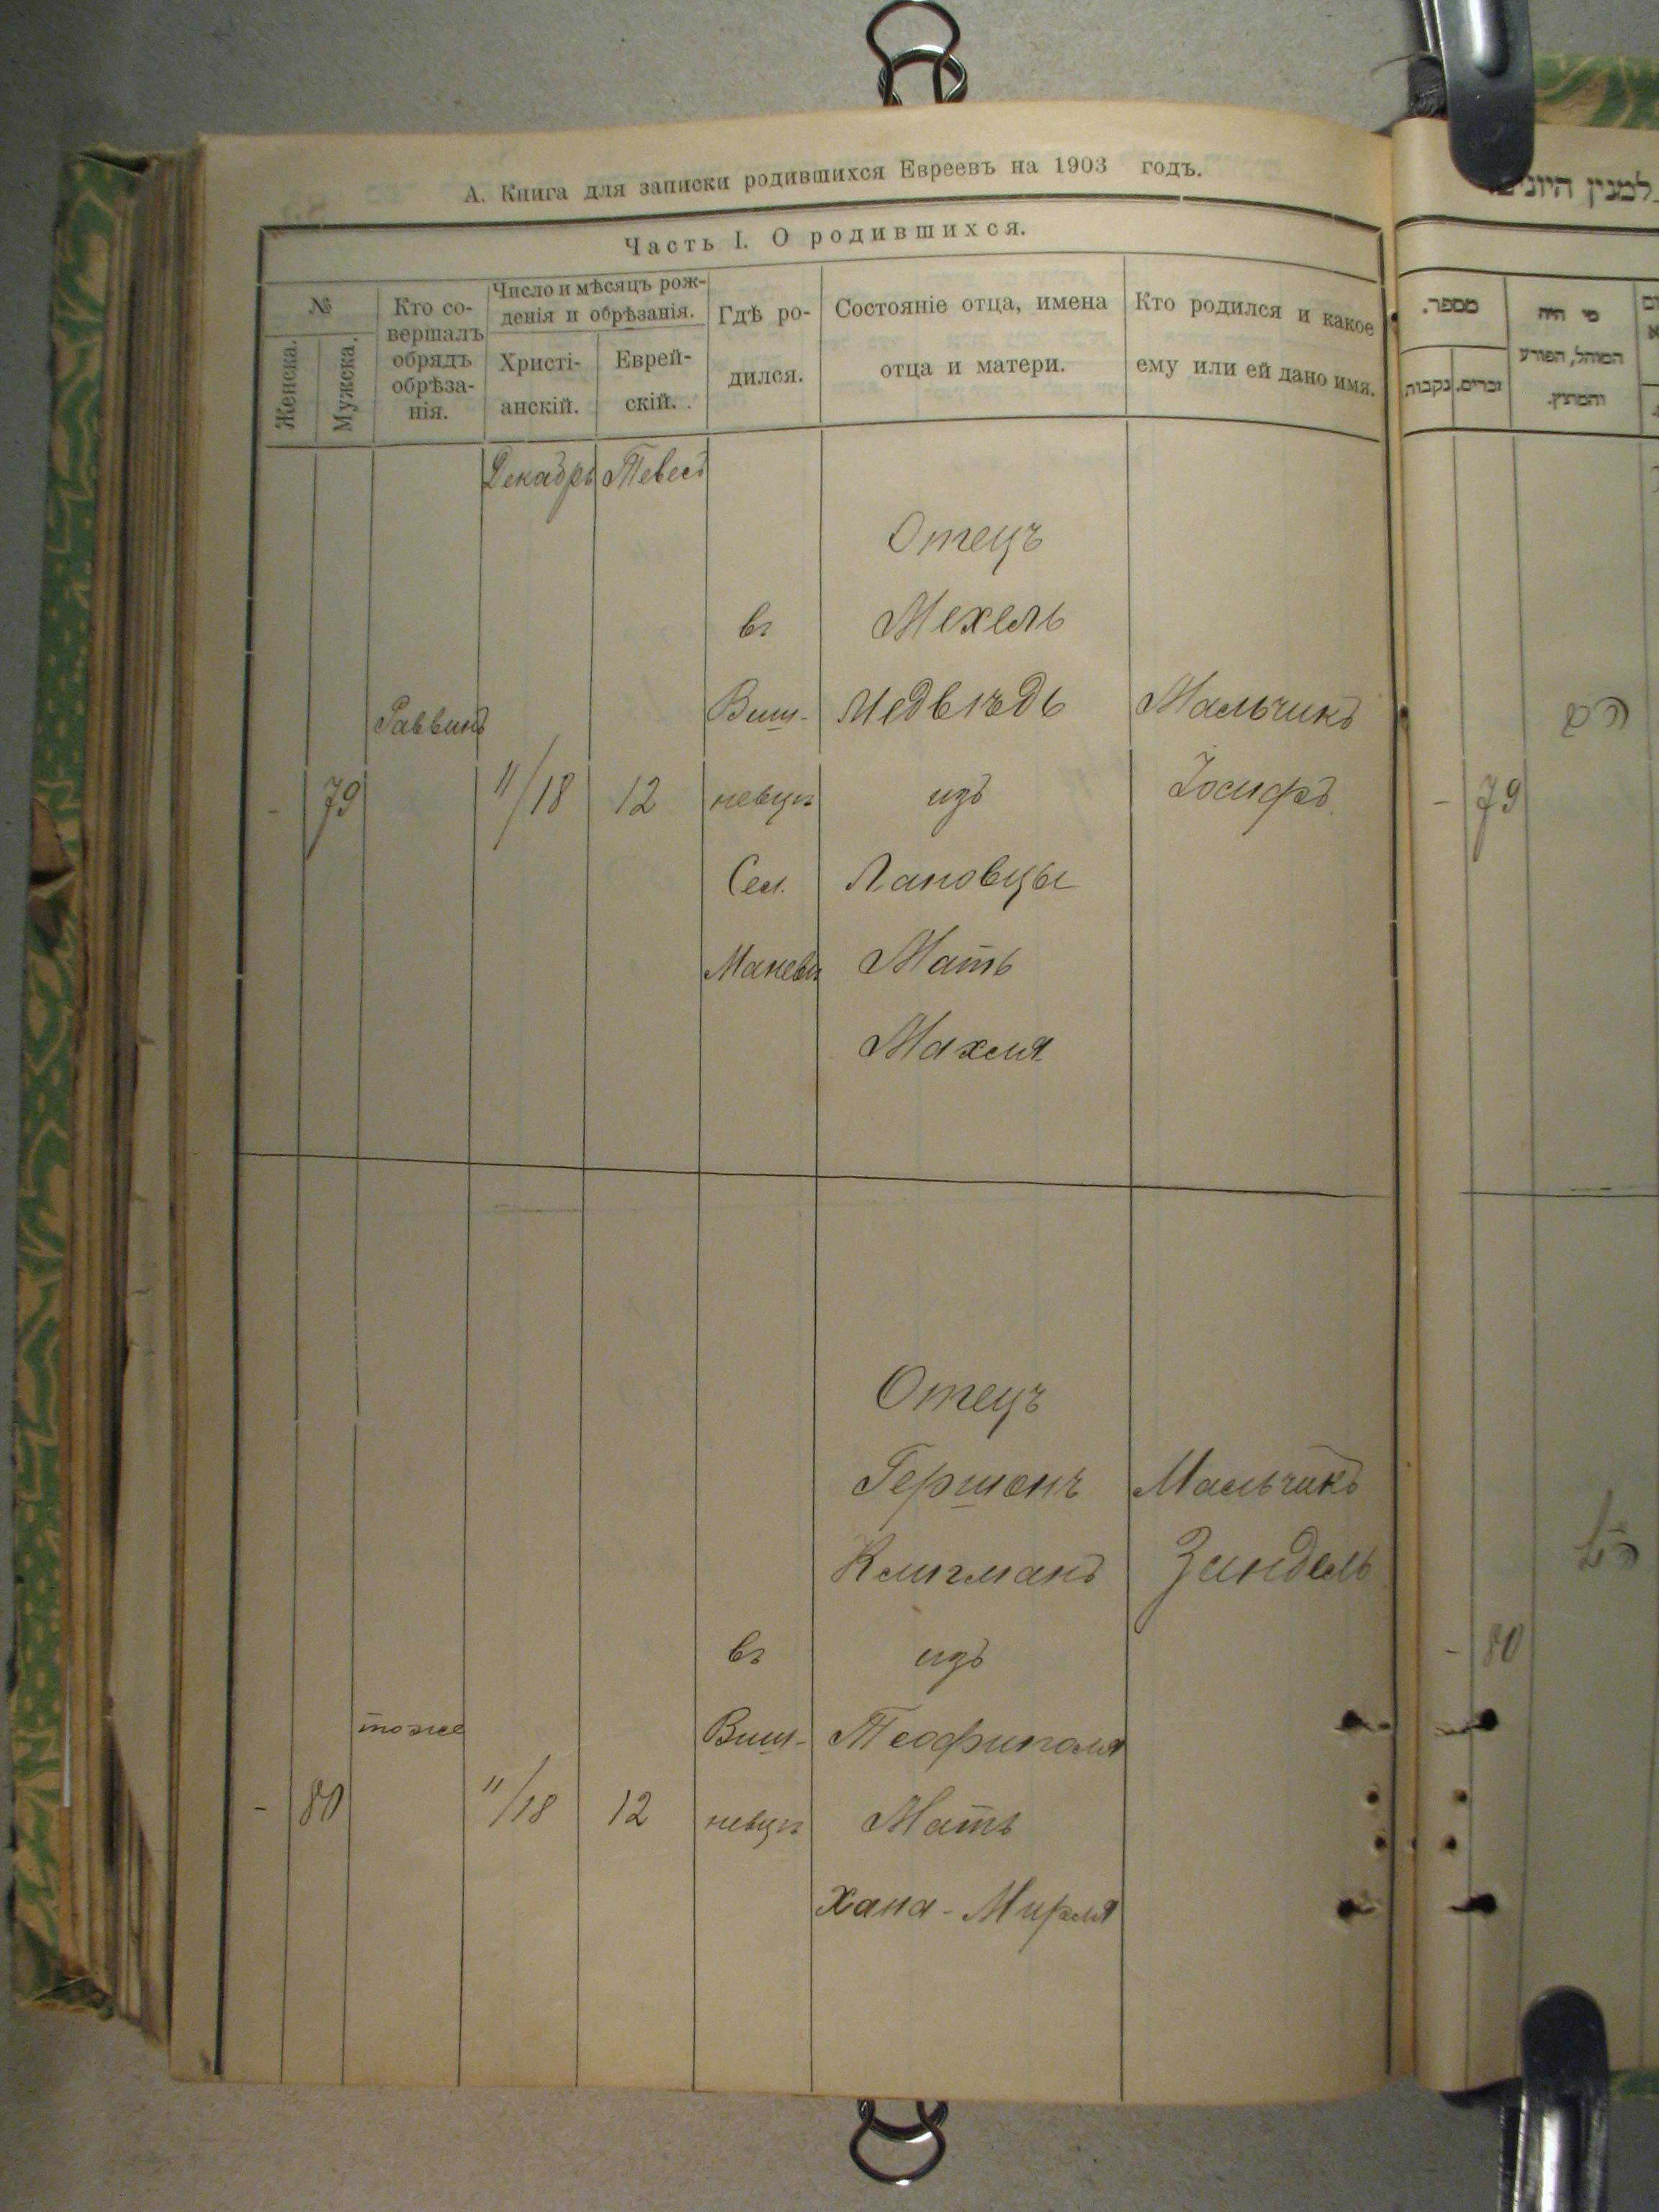 А. Книга для записки родившихся Евреевъ на 1903 годъ.
Часть I. О родившихся.
№
Женска.
Мужска.
Кто со-
вершалъ
обрядъ
обрѣза-
нія.
Число и мѣсяцъ рож-
денія и обрѣзанія.
Христі-
анскій.
Еврей-
скій.
Гдѣ ро-
дился.
Состояніе отца, имена
отца и матери.
Кто родился и какое
ему или ей дано имя.
Декабрь Тевесъ
- 79
Раввинъ
11/18
12
въ
Виш-
невцѣ
Сел.
Отецъ
Мехель
Медвѣдь
изъ
Лановцы
Мать
Махля
Мальчикъ
Іосифъ
- 80
тоже
11/18
12
въ
Виш-
невцѣ
Отецъ
Гершонъ
Клигманъ
изъ
Теофиполя
Мать
Хана - Мирля
Мальчикъ
Зиндель
מספר.
נקבות
זכרים.
מי היה
המוהל, הפורע
והמוצץ.
- 79
- 80